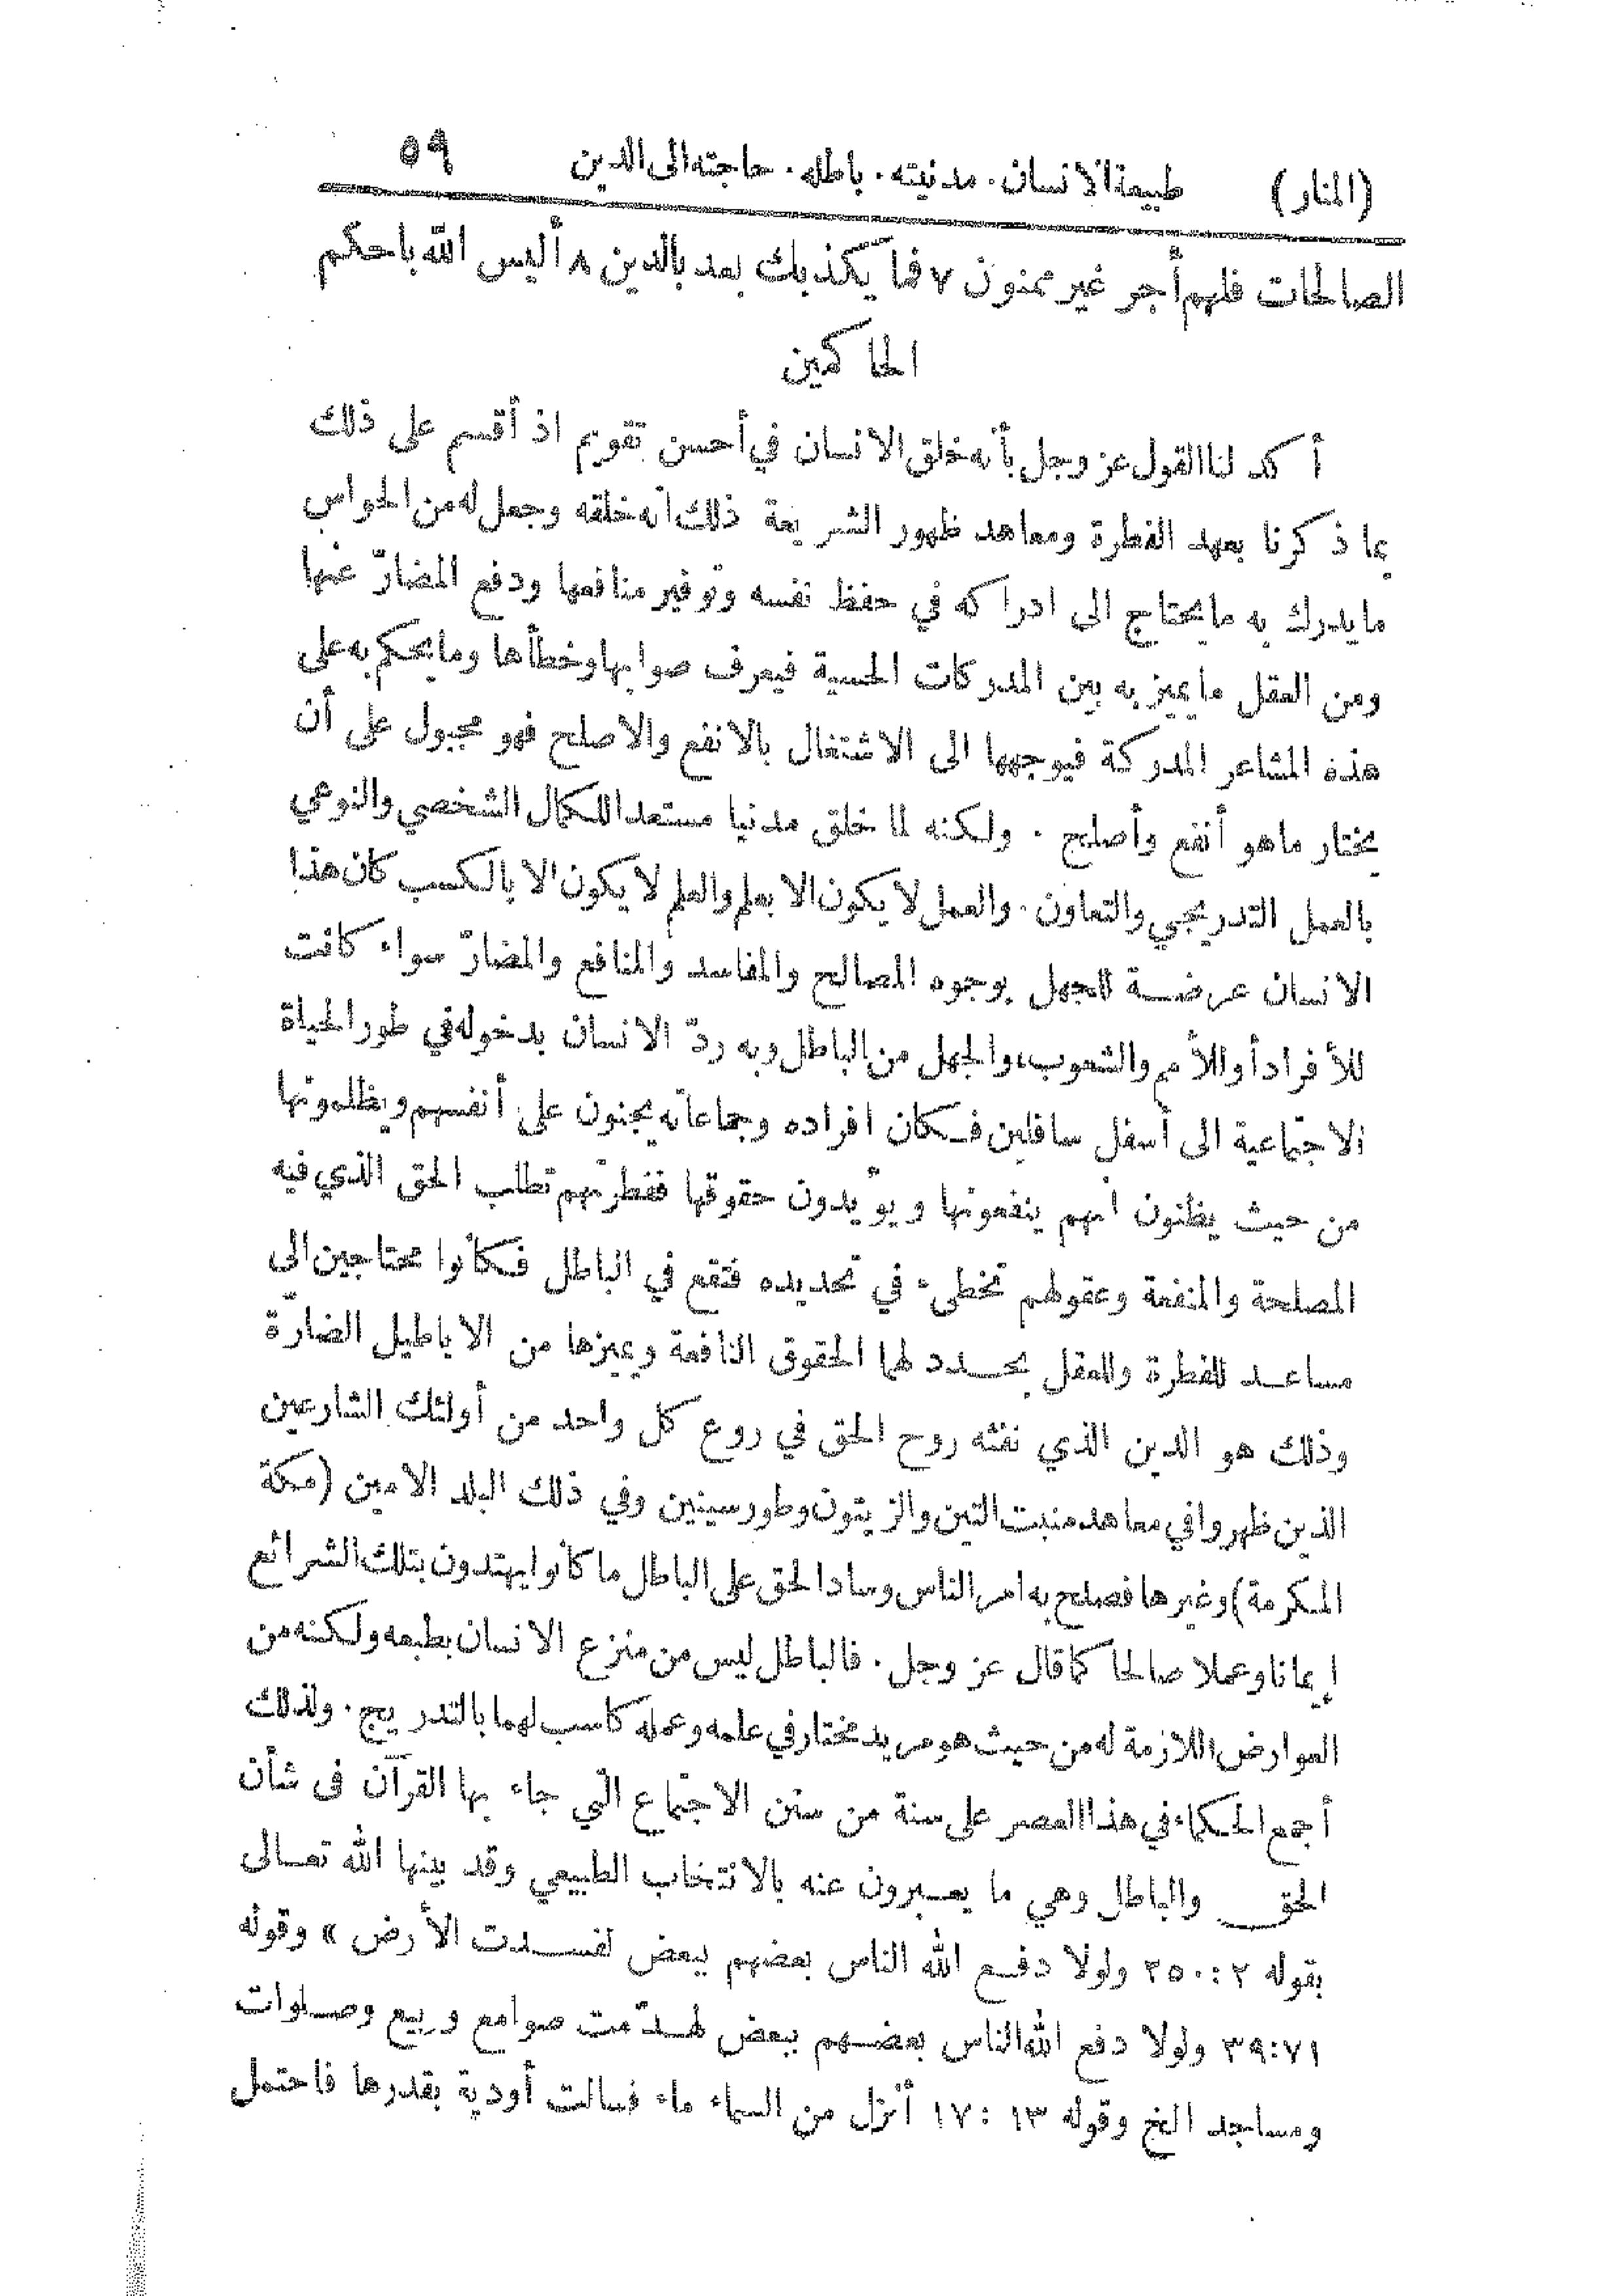 (المنار) طبيعة الانسان. مدنيته. باطله. حاجته الى الدين ٥٩
الصالحات فلهم أجر غير ممنون ٧ فما يكذبك بعد بالدين ٨ أليس الله باحكم
الحاكمين
أكد لنا القول عز وجل بأنه خلق الانسان في أحسن تقويم اذ أقسم على ذلك
بما ذكرنا بعهد الفطرة ومعاهد ظهور الشريعة ذلك انه خلقه وجعل له من الحواس
ما يدرك به ما يحتاج الى ادراكه في حفظ نفسه وتوفير منافعها ودفع المضارّ عنها
ومن العقل ما يميز به بين المدركات الحسية فيعرف صوابها وخطأها وما يحكم به على
هذه المشاعر المدركة فيوجهها الى الاشتغال بالانفع والاصلح فهو مجبول على أن
يختار ما هو أنفع وأصلح . ولكنه لما خلق مدنيا مستعدا للكمال الشخصي والنوعي
بالعمل التدريجي والتعاون. والعمل لا يكون الا بعلم والعلم لا يكون الا بالكسب كان هذا
الانسان عرضة للجهل بوجوه المصالح والمفاسد والمنافع والمضارّ سواء كانت
للأفراد أو للأمم والشعوب، والجهل من الباطل وبه ردّ الانسان بدخوله في طور الحياة
الاجتماعية الى أسفل سافلين فكان افراده وجماعاته يجنون على أنفسهم ويظلمونها
من حيث يظنون انهم ينفعونها ويؤيدون حقوقها ففطرتهم تطلب الحق الذي فيه
المصلحة والمنفعة وعقولهم تخطىء في تحديده فتقع في الباطل فكانوا محتاجين الى
مساعد للفطرة وللعقل يحدد لهما الحقوق النافعة ويميزها من الاباطيل الضارّة
وذلك هو الدين الذي نفثه روح الحق في روع كل واحد من أولئك الشارعين
الذين ظهروا في معاهد منبت التين والزيتون وطور سينين وفي ذلك البلد الامين (مكة
المكرمة) وغيرها فصلح به امر الناس وساد الحق على الباطل ما كانوا يهتدون بتلك الشرائع
إيمانا وعملا صالحاً كما قال عز وجل . فالباطل ليس من منزع الانسان بطبعه ولكنه من
العوارض اللازمة له من حيث هو مريد مختار في علمه وعمله كاسب لهما بالتدريج. ولذلك
أجمع الحكماء في هذا العصر على سنة من سنن الاجتماع التي جاء بها القرآن فى شأن
الحق والباطل وهي ما يعبرون عنه بالانتخاب الطبيعي وقد بينها الله تعالى
بقوله ٢ :٢٥٠ ولولا دفع الله الناس بعضهم ببعض لفسدت الأرض » وقوله
٣٩:٧١ ولولا دفع الله الناس بعضهم ببعض لهدّمت صوامع وبيع وصلوات
ومساجد الخ وقوله ١٣ :١٧ أنزل من السماء ماء فسالت أودية بقدرها فاحتمل